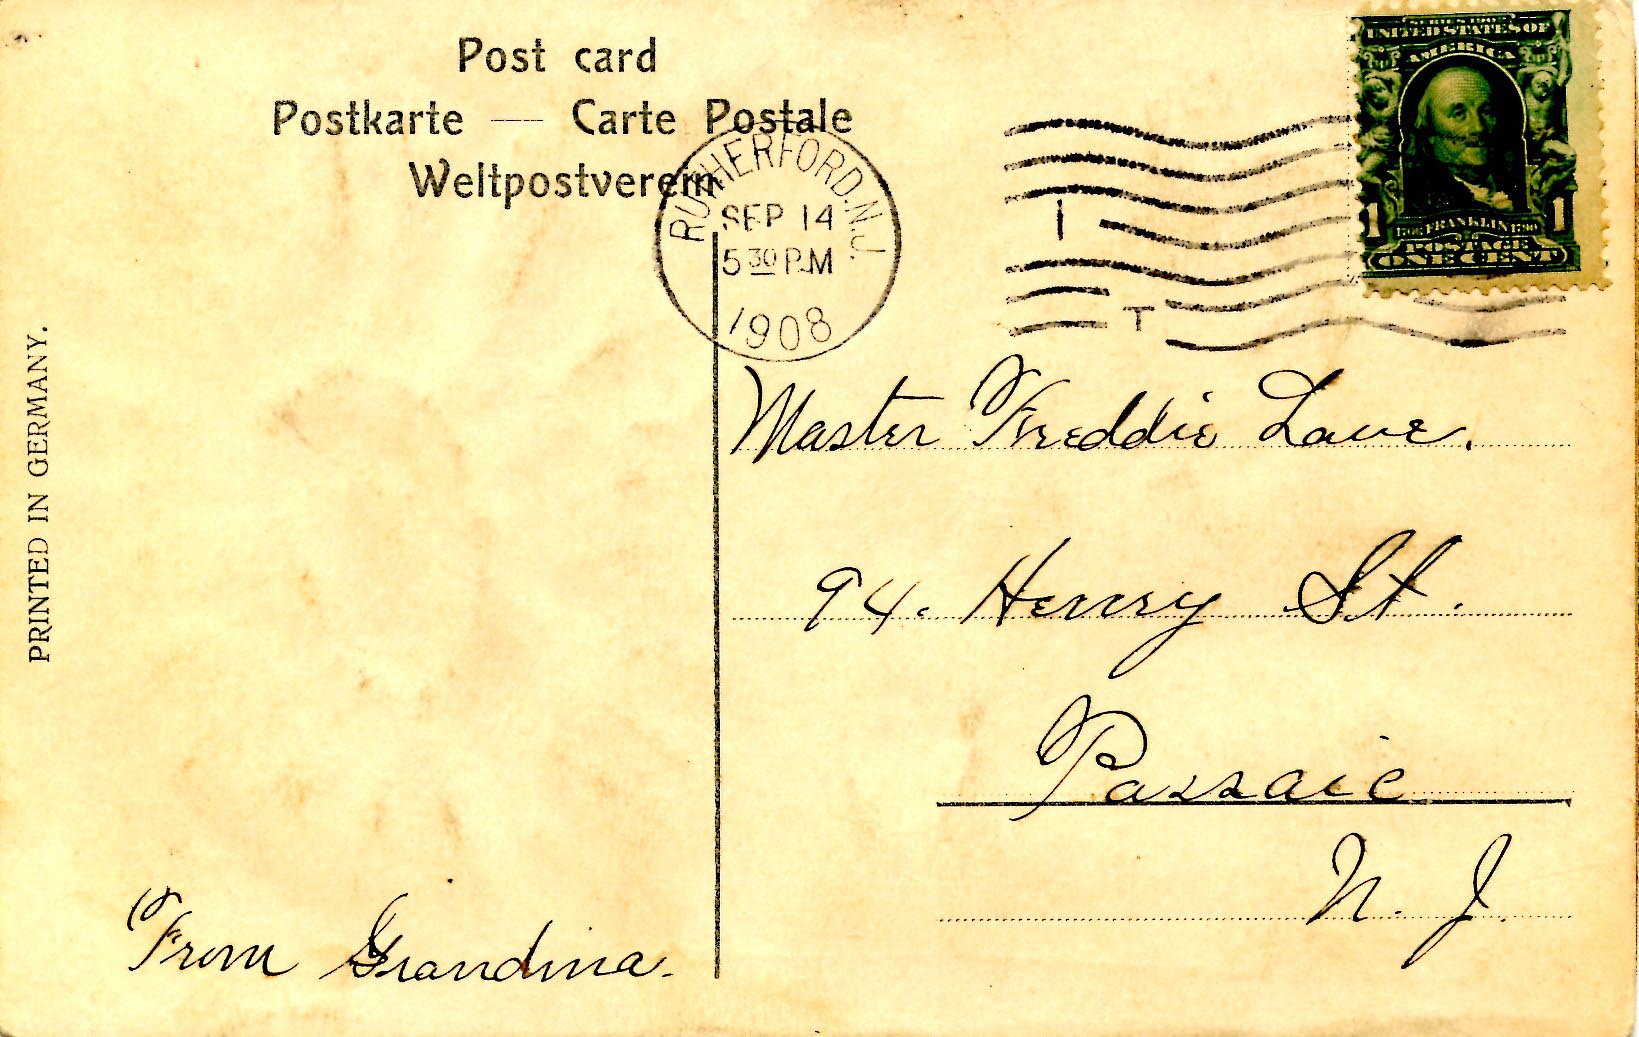 Post card
Postkarte — Carte Postale
Weltpostverein
RUTHERFORD. N.J.
SEP 14
5 30 P.M
1908
SERIES 1902
UNITED STATES OF
AMERICA
1 FRANKLIN 1
POSTAGE
ONE CENT
I
T
Master Freddie Lave.
94. Henry St.
Passaic
N. J.
From Grandma.
PRINTED IN GERMANY.